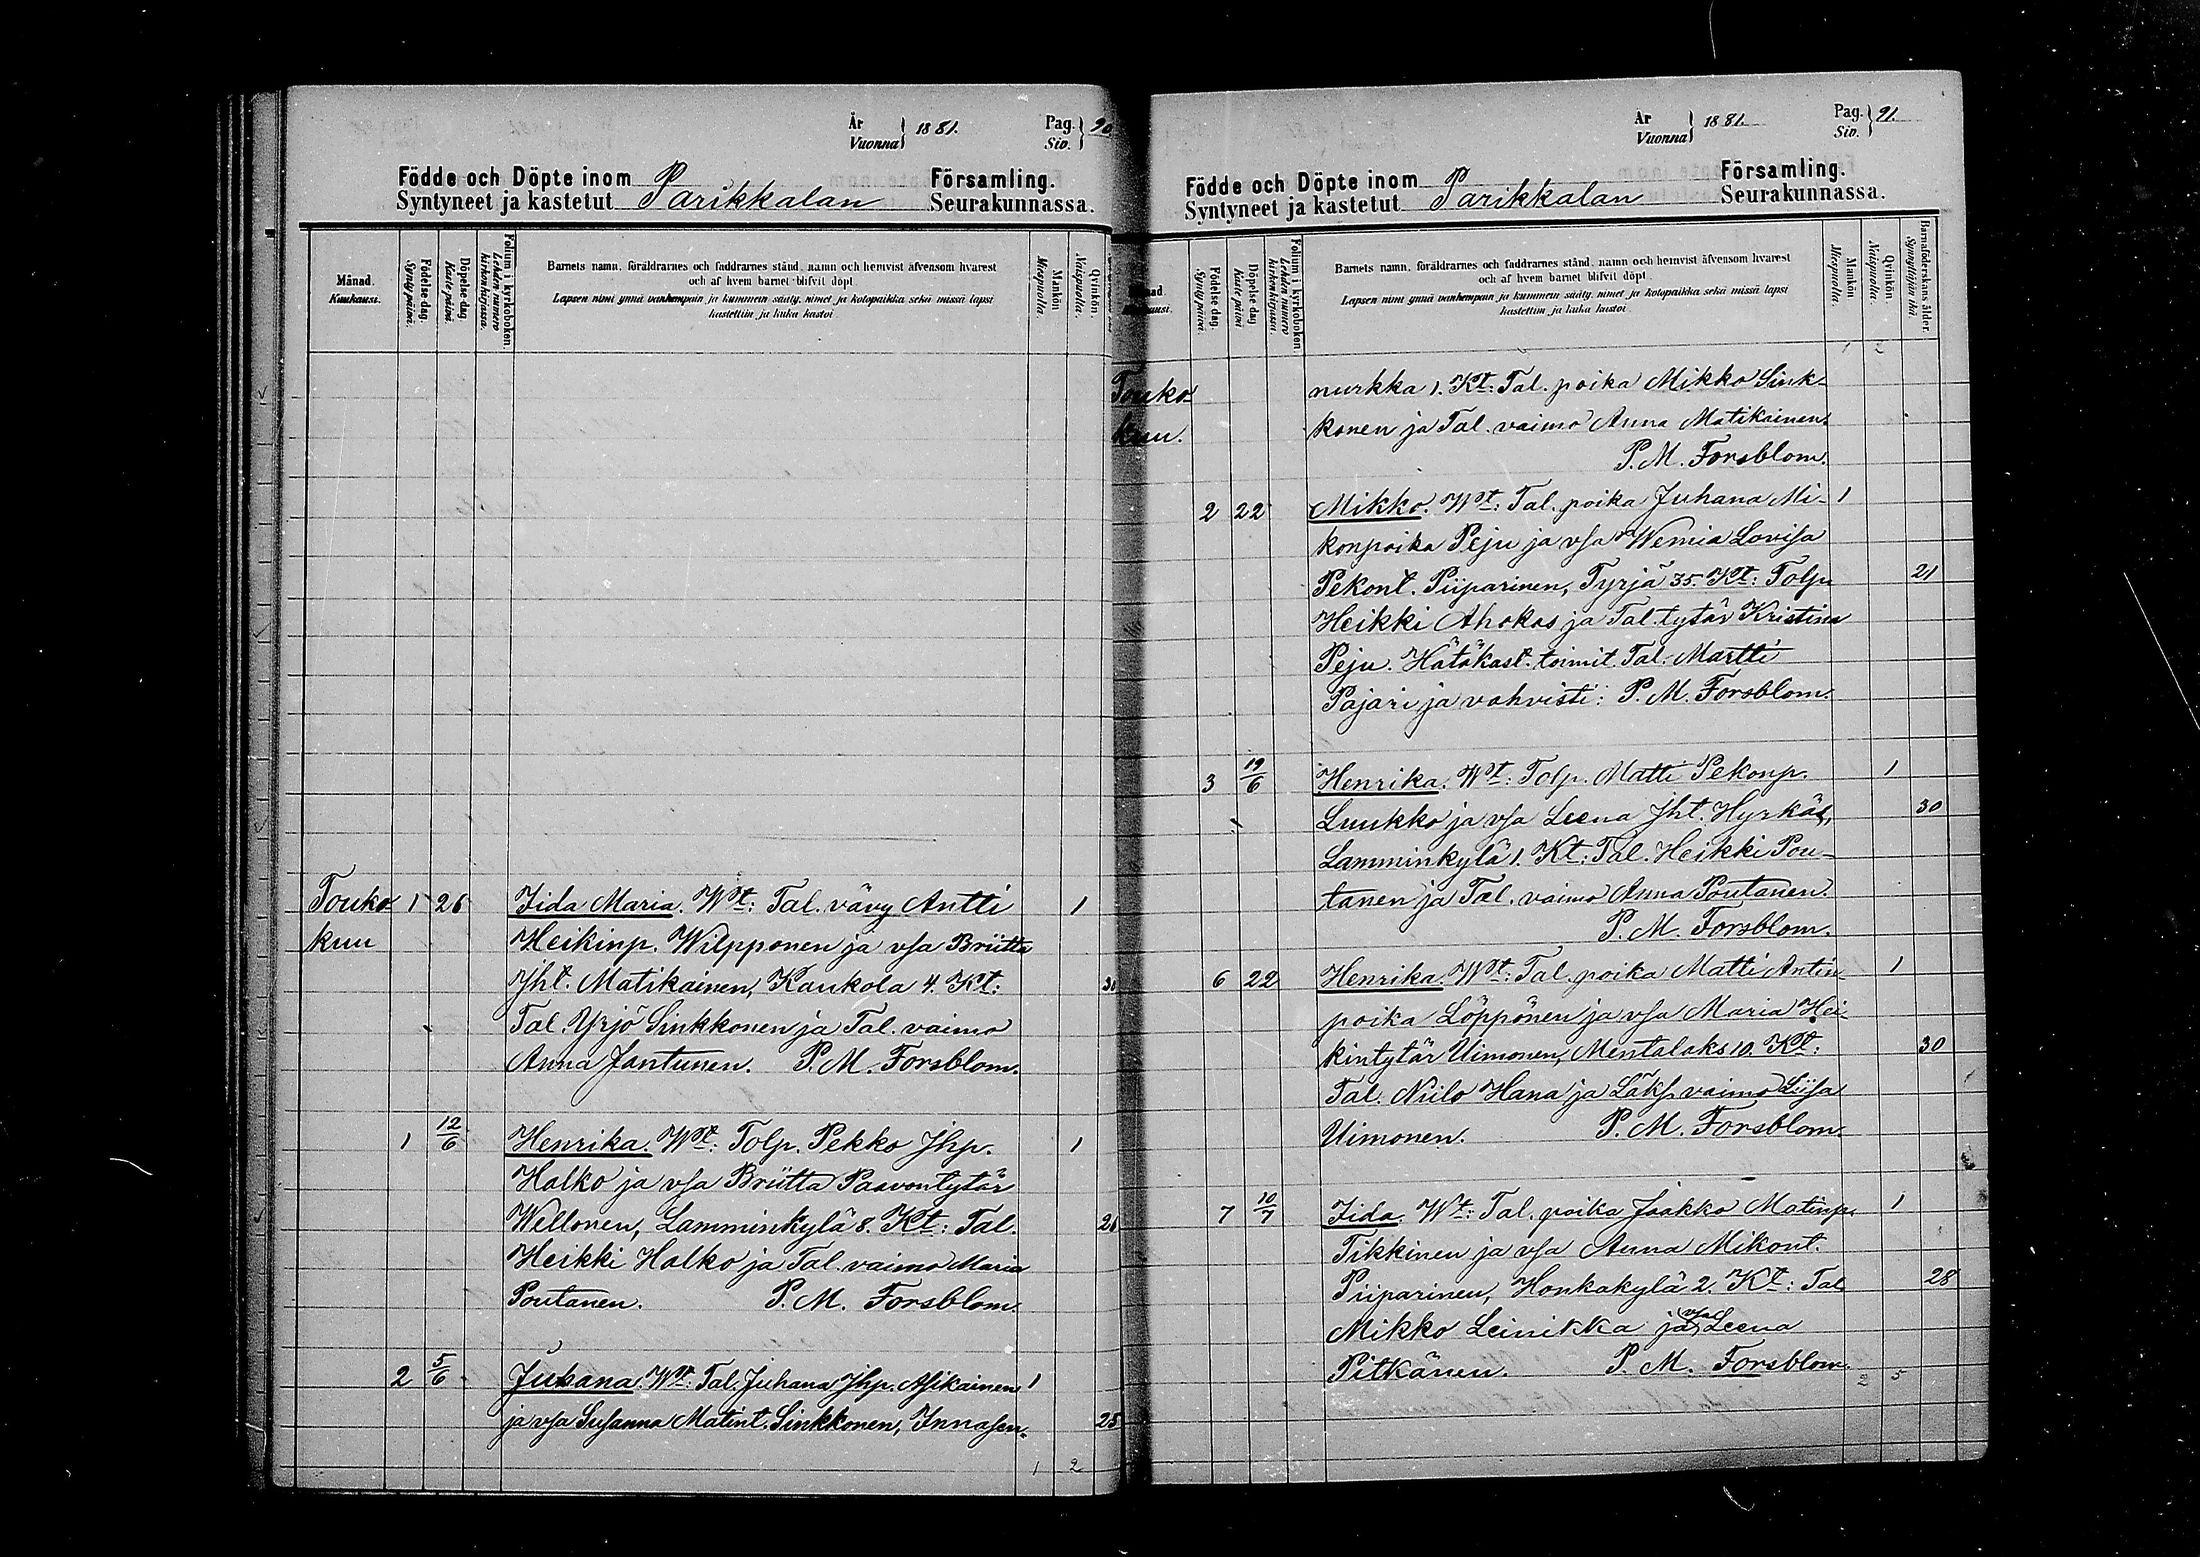 År
Vuonna } 1881.
Pag.
Siv. } 90
Födde och Döpte inom Parikkalan Församling.
Syntyneet ja kastetut Seurakunnassa.
Månad.
Kuukausi.
Födelse dag.
Synty päivä.
Döpelse dag
Kaste päivä
Folium i kyrkoboken.
Lehden numero kirkonkirjassa.
Barnets namn, föräldrarnes och faddrarnes stånd, namn och hemvist äfvensom hvarest
och af hvem barnet blifvit döpt.
Lapsen nimi ynnä vanhempain ja kummein sääty, nimet ja kotopaikka sekä missä lapsi
kastettiin ja kuka kastoi.
Mankön
Miespuolia.
Qvinkön.
Naispuolia.
Touko 1 26 Iida Maria. Wt: Tal. vävy Antti 1
kuu Heikinp. Wilpponen ja vsa Briitta
Jht. Matikainen, Kaukola 4. Kt: 30
Tal. Yrjö Sinkkonen ja Tal. vaimo
Anna Jantunen. P. M. Forsblom.
1 12/6 Henrika. Wt: Tolp. Pekko Jhp. 1
Halko ja vsa Briitta Paavontytär
Wellonen, Lamminkylä 8. Kt: Tal. 26
Heikki Halko ja Tal. vaimo Maria
Poutanen. P. M. Forsblom.
2 5/6 Juhana. Wt: Tal. Juhana Jhp. Asikainen 1
ja vsa Susanna Matint. Sinkkonen, Innasen- 25
1 2
År
Vuonna } 1881.
Pag.
Siv. } 91.
Födde och Döpte inom Parikkalan Församling.
Syntyneet ja kastetut Seurakunnassa.
Födelse dag.
Synty päivä.
Döpelse dag
Kaste päivä
Folium i kyrkoboken.
Lehden numero kirkonkirjassa.
Barnets namn, föräldrarnes och faddrarnes stånd, namn och hemvist äfvensom hvarest
och af hvem barnet blifvit döpt.
Lapsen nimi ynnä vanhempain ja kummein sääty, nimet ja kotopaikka sekä missä lapsi
kastettiin ja kuka kastoi.
Mankön
Miespuolia.
Qvinkön
Naispuolia.
Barnaföderskans ålder.
Synnyttäjän ikä.
1 2
Touko- nurkka 1. Kt: Tal. poika Mikko Sink-
kuu. konen ja Tal. vaimo Anna Matikainen.
P. M. Forsblom.
2 22 Mikko. Wt: Tal. poika Juhana Mi- 1
konpoika Peju ja vsa Wemia Lovisa
Pekont. Piiparinen, Tyrjä 35. Kt: Tolp. 21
Heikki Ahokas ja Tal. tytär Kristina
Peju. Hätäkast. toimit. Tal. Martti
Pajari ja vahvisti: P. M. Forsblom.
3 19/6 Henrika. Wt: Tolp. Matti Pekonp. 1
Luukko ja vsa Leena Jht. Hyrkäs, 30
Lamminkylä 1. Kt: Tal. Heikki Pou-
tanen ja Tal. vaimo Anna Poutanen.
P. M. Forsblom.
6 22 Henrika. Wt: Tal. poika Matti Antin- 1
poika Löppönen ja vsa Maria Hei-
kintytär Uimonen, Mentalaks 10. Kt: 30
Tal. Niilo Hana ja Läks. vaimo Liisa
Uimonen. P. M. Forsblom.
7 10/7 Iida. Wt: Tal. poika Jaakko Matinp. 1
Tikkinen ja vsa Anna Mikont.
Piiparinen, Honkakylä 2. Kt: Tal. 28
Mikko Leinikka ja vsa Leena
Pitkänen. P. M. Forsblom.
2 5